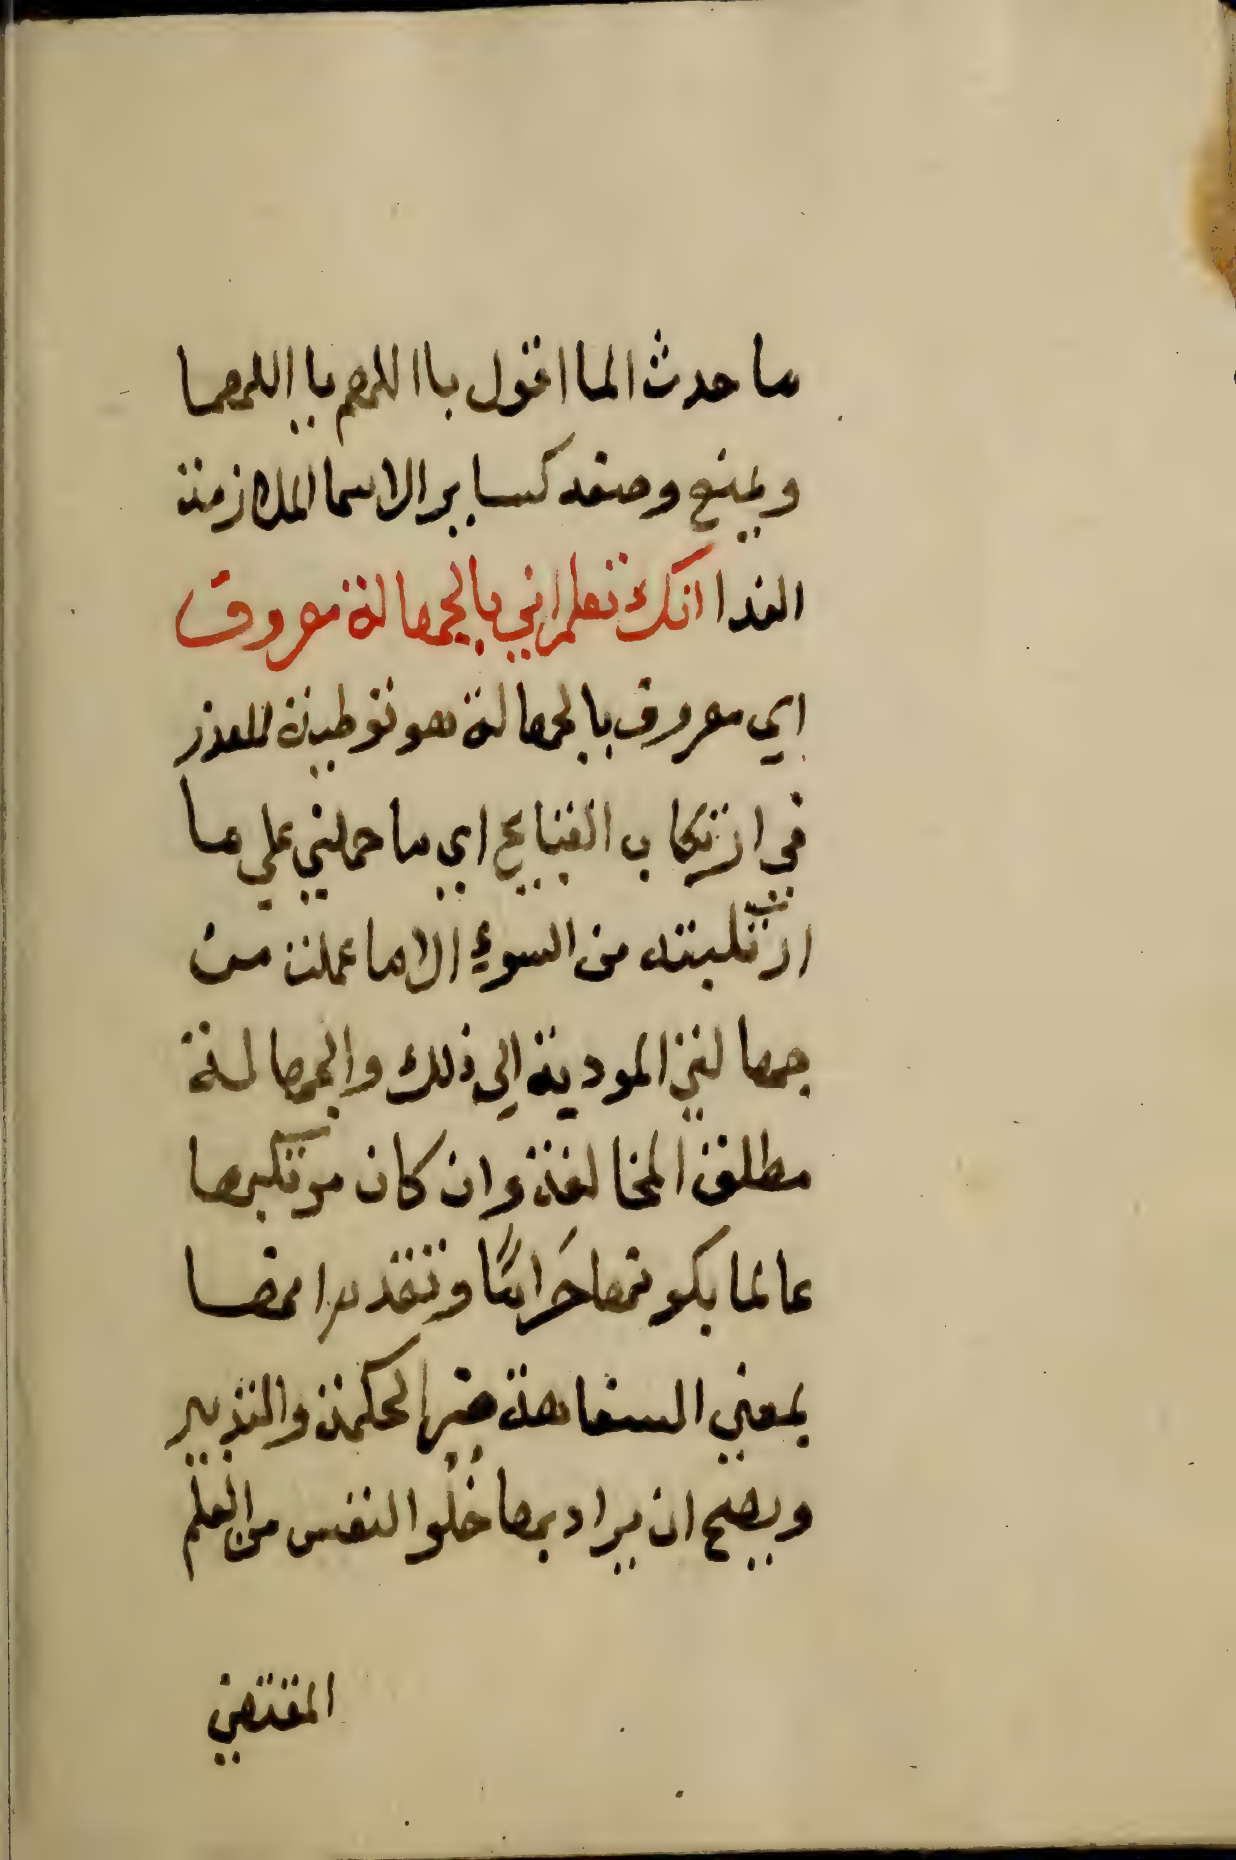 ما حدث الما اقول يا اللهم يا اللهما
ويمنع وصفه كساير الاسما الملازمة
الندا انك تعلم اني بالجهالة معروف
اي معروف بالجهالة هو توطية للعذر
في ارتكاب القبايح اي ما حملني علي ما
ارتكبته من السوءِ الا ما عملت من
جهالتي المودية الى ذلك والجهالة
مطلق المخالفة وان كان مرتكبها
عالما بكونها حَرامًا وتقدم انها
بمعني السفاهة ضد الحكمة والتدبير
ويصح ان يراد بها خُلو النفس من العلم
المقتضي